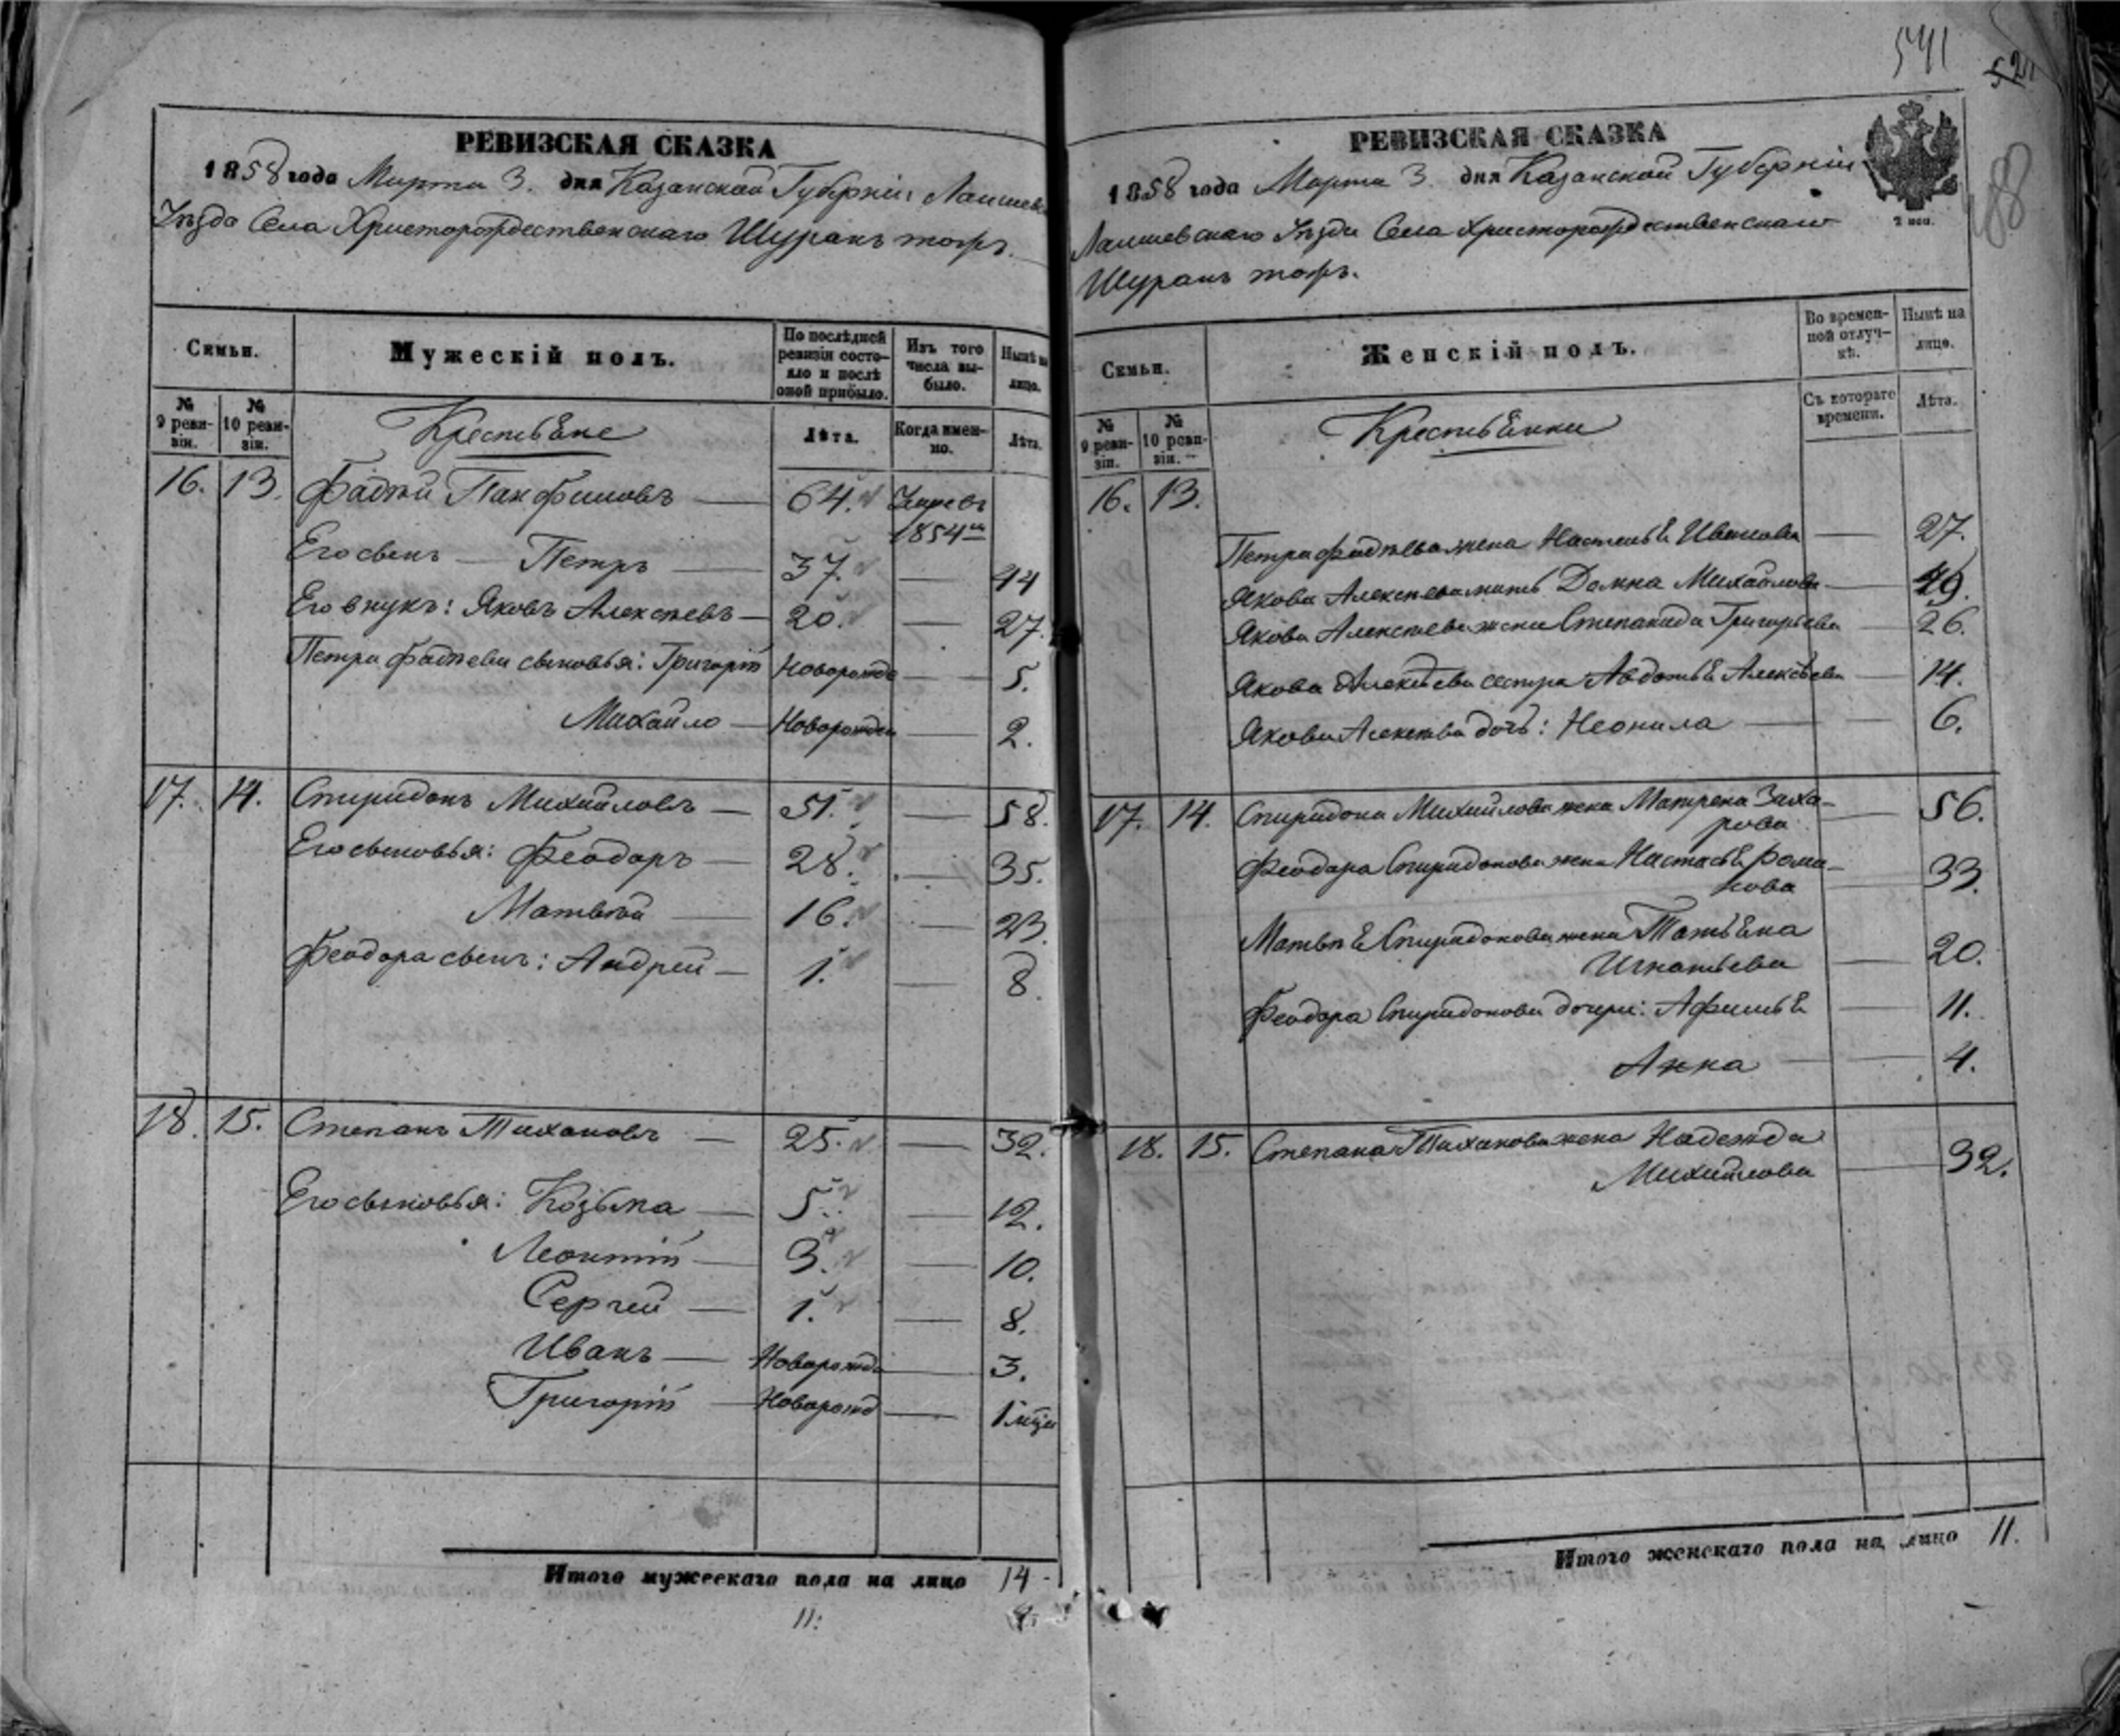 РЕВИЗСКАЯ СКАЗКА
1858 года Марта 3. дня Казанской Губерніи Лаишев
Уѣзда Села Христорождественскаго Шуранъ тожъ.
Семьи.
Мужескій полъ.
По послѣдней ревизіи состояло и послѣ оной прибыло.
Изъ того числа выбыло.
Нынѣ на лицо.
№ 9 ревизіи.
№ 10 ревизіи.
Крестьяне
Лѣта.
Когда именно.
Лѣта.
16. 13. Фадѣй Панфиловъ — 64. Умеръ
1854го
Его сынъ — Петръ — 37. — 44
Его внукъ: Яковъ Алексѣевъ — 20. — 27.
Петра Фадѣева сыновья: Григорій Новорожд — 5.
Михайло — Новорожден — 2.
17. 14. Спиридонъ Михайловъ — 51. — 58.
Его сыновья: Феодоръ — 28. — 35.
Матвѣй — 16. — 23.
Феодора сынъ: Андрей — 1. — 8.
18. 15. Степанъ Тихановъ — 25. — 32.
Его сыновья: Козьма — 5. — 12.
Леонтій — 3. — 10.
Сергей — 1. — 8.
Иванъ — Новорожд — 3.
Григорій — Новорожд — 1 мѣся
Итого мужескаго пола на лицо 14
11:
541
521
188
РЕВИЗСКАЯ СКАЗКА
1858 года Марта 3 дня Казанской Губерніи
2 коп.
Лаишевскаго Уѣзда Села Христорождественскаго
Шуранъ тожъ.
Семьи.
Женскій полъ.
Во временной отлучкѣ.
Нынѣ на лицо.
№ 9 ревизіи.
№ 10 ревизіи.
Крестьянки
Съ котораго времени.
Лѣта.
16. 13.
Петра Фадѣева жена Настасья Иванова — 27.
Якова Алексѣева мать Домна Михайлова — 49.
Якова Алексѣева жена Степанида Григорьева — 26.
Якова Алексѣева сестра Авдотья Алексѣева — 14.
Якова Алексѣева дочь: Неонила — 6.
17. 14. Спиридона Михайлова жена Матрена Заха-
рова — 56.
Феодора Спиридонова жена Настасья Рома-
нова — 33.
Матвѣя Спиридонова жена Татьяна
Игнатьева — 20.
Феодора Спиридонова дочери: Афимья — 11.
Анна — 4.
18. 15. Степана Тиханова жена Надежда
Михайлова — 32.
Итого женскаго пола на лицо 11.